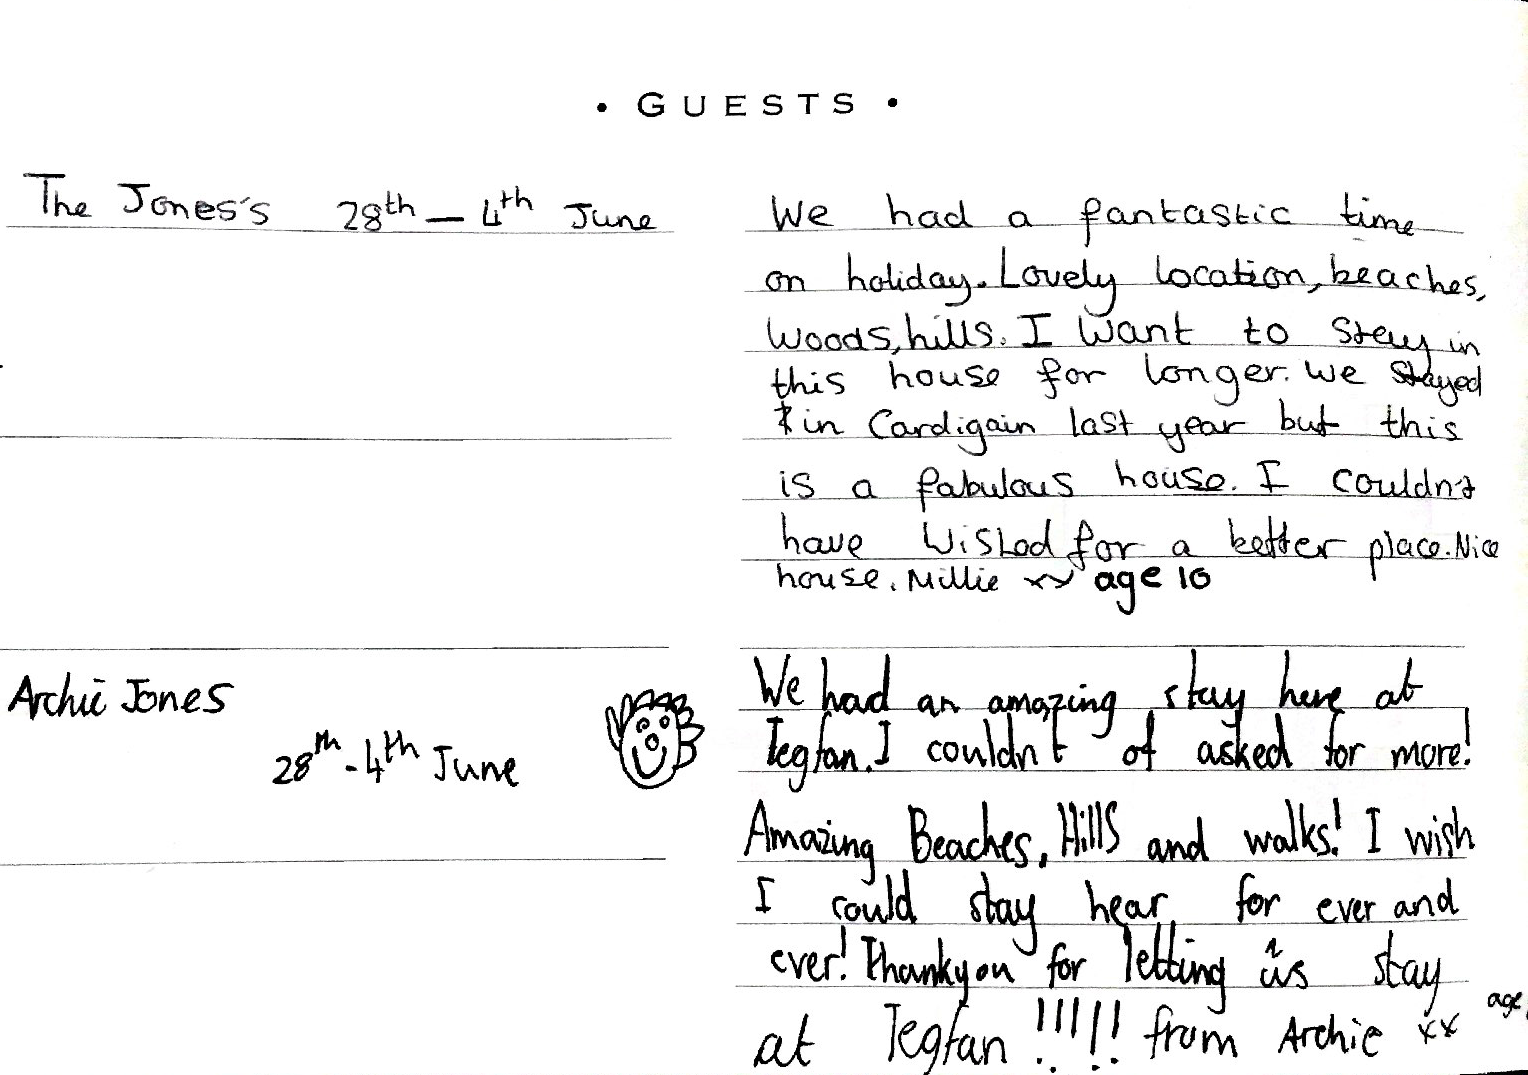 • GUESTS •
The Jones's 28th - 4th June
We had a fantastic time
on holiday. Lovely location, beaches,
woods, hills. I want to stay in
this house for longer. We stayed
in Cardigain last year but this
is a fabulous house. I couldn't
have wished for a better place. Nice
house. Millie xx age 10
Archie Jones
28th - 4th June
We had an amazing stay here at
Tegfan. I couldn't of asked for more!
Amazing Beaches, Hills and walks! I wish
I could stay hear for ever and
ever! Thankyou for letting us stay
at Tegfan !!!!! from Archie xx age